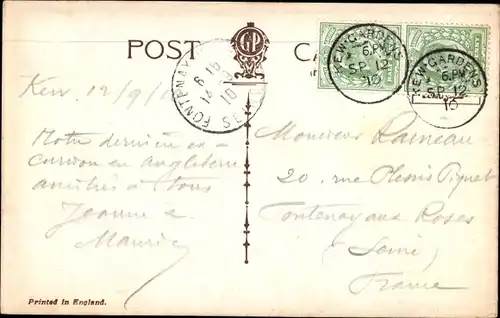 POST CA
GP
KEW GARDENS
6.PM
SP 12
10
KEW GARDENS
6.PM
SP 12
10
FONTENAY
6 15
13 9
10
SE
Kew 12/9/10
Notre dernière ex-
cursion en Angleterre
amitiés à tous
Jeanne &
Maurice
Monsieur
20, rue Plessis Piquet
Fontenay aux Roses
(Seine)
France
Printed in England.